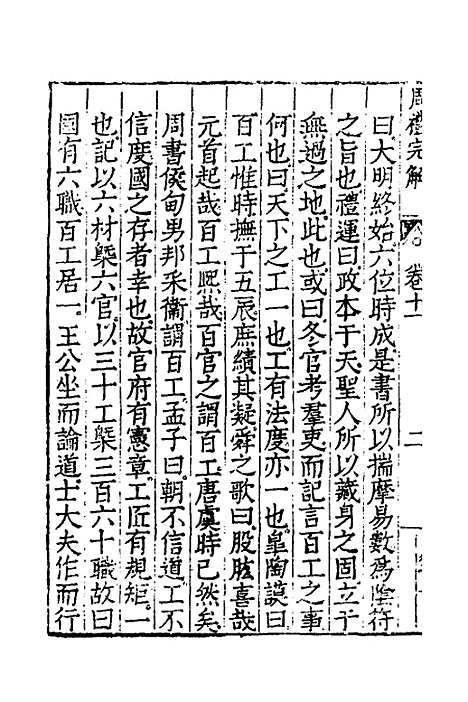 周禮完解 卷十一 二
曰大明終始六位時成是書所以揣摩易數爲陰符
之旨也禮運曰政本于天聖人所以藏身之固立于
無過之地此也或曰冬官考羣吏而記言百工之事
何也曰天下之工一也工有法度亦一也臯陶謨曰
百工惟時撫于五辰庶績其凝舜之歌曰股肱喜哉
元首起哉百工熈哉百官之謂百工唐虞時已然矣
周書侯甸男邦采衞謂百工孟子曰朝不信道工不
信度國之存者幸也故官府有憲章工匠有規矩一
也記以六材槩六官以三十工槩三百六十職故曰
國有六職百工居一王公坐而論道士大夫作而行